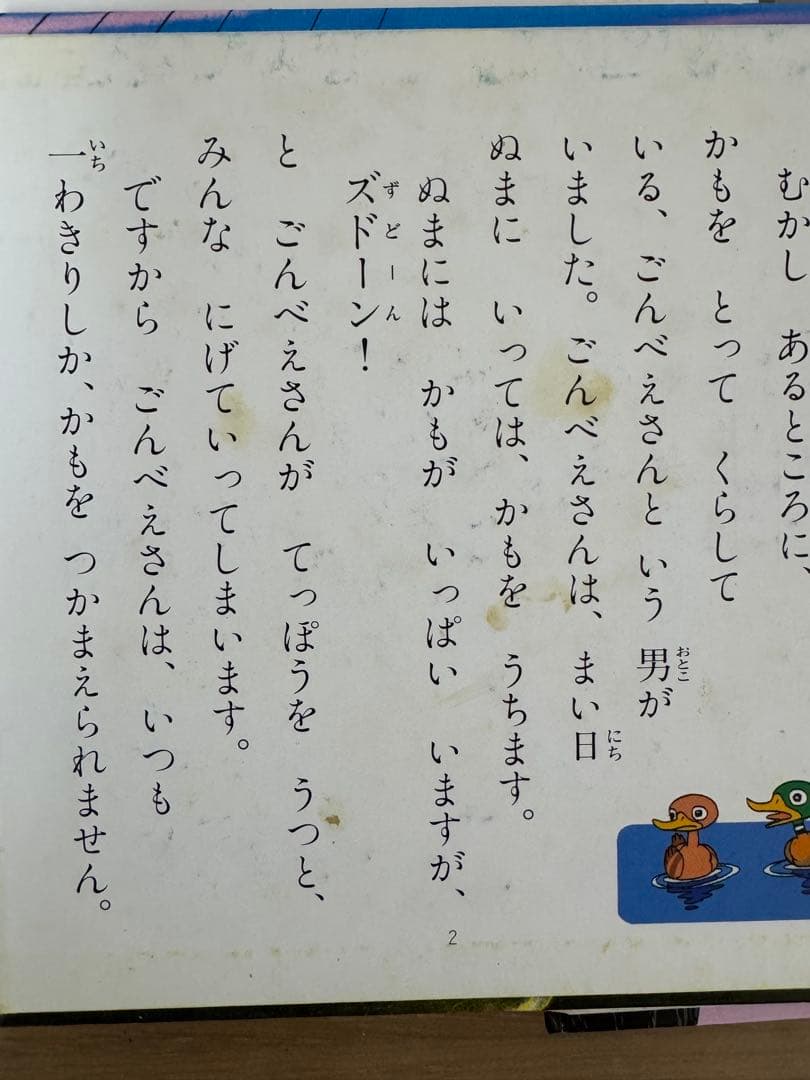 むかし あるところに、
かもを とって くらして
いる、ごんべえさんと いう 男が
おとこ
いました。ごんべえさんは、 まい日
にち
ぬまに いっては、かもを うちます。
ぬまには かもが いっぱい いますが、
ズドーン!
ずどーん
と ごんべえさんが てっぽうを うつと、
みんな にげていってしまいます。
ですから ごんべえさんは、いつも
一わきりしか、かもを つかまえられません。
いち
2